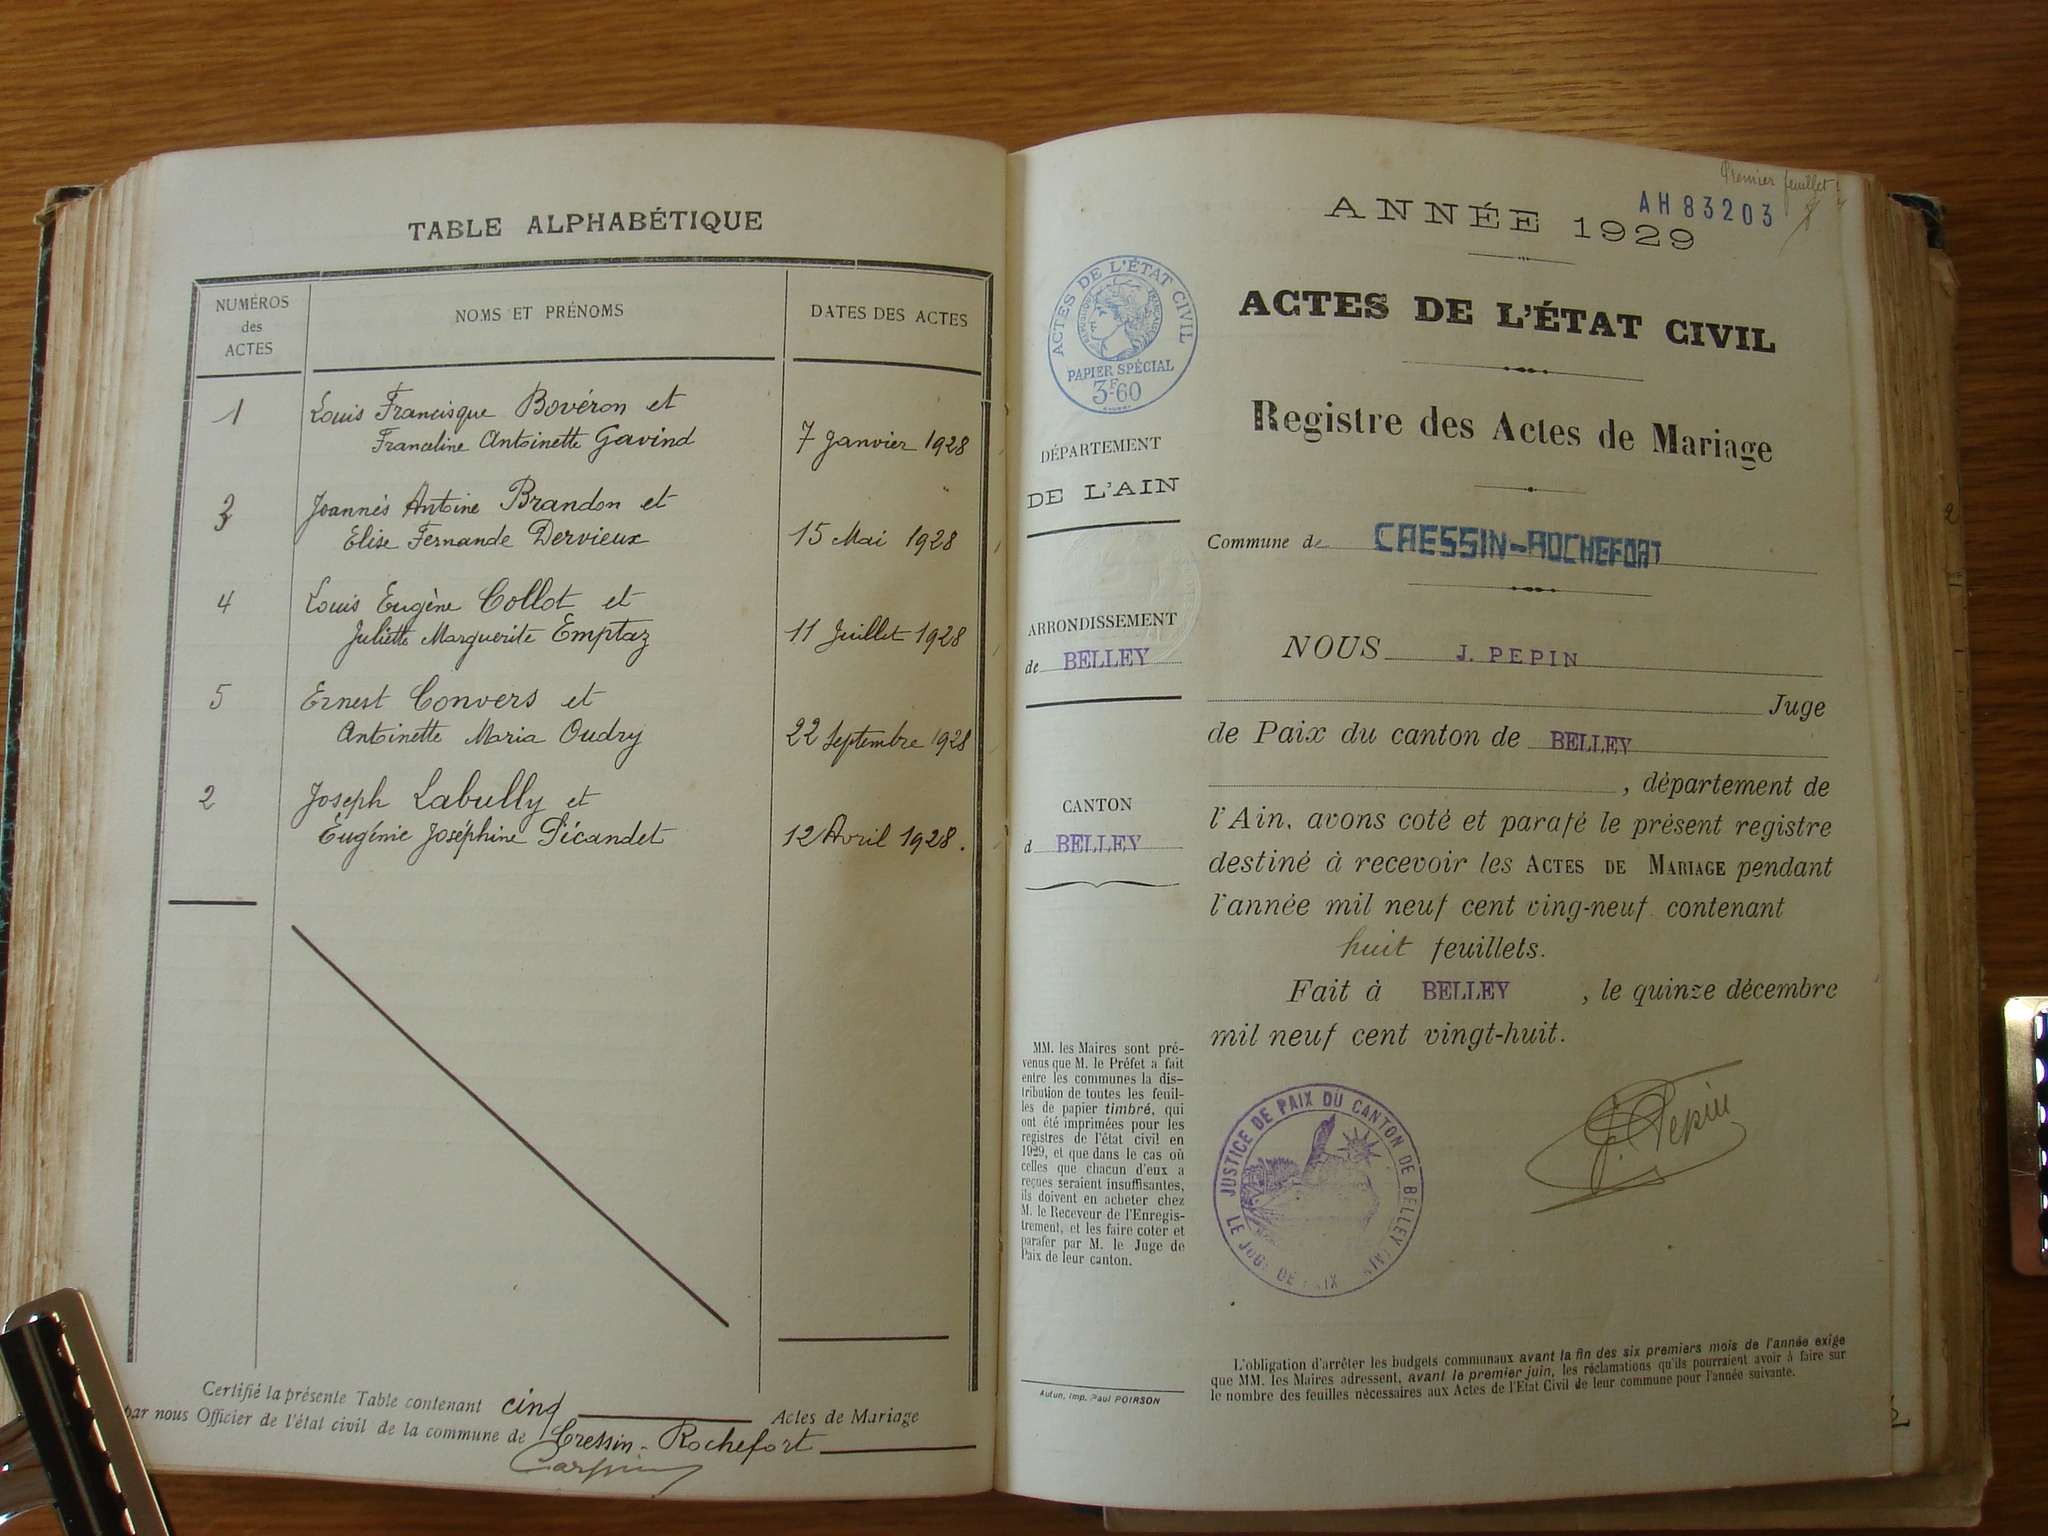 TABLE ALPHABÉTIQUE
NUMÉROS
des
ACTES
NOMS ET PRÉNOMS
DATES DES ACTES
1
Louis Francisque Bovéron et
Franceline Antoinette Gavind
7 Janvier 1928
3
Joannès Antoine Brandon et
Elise Fernande Dervieux
15 Mai 1928
4
Louis Eugène Collot et
Juliette Marguerite Emptaz
11 Juillet 1928
5
Ernest Convers et
Antoinette Maria Oudry
22 Septembre 1928
2
Joseph Labully et
Eugénie Joséphine Pécandet
12 Avril 1928.
Certifié la présente Table contenant cinq Actes de Mariage
par nous Officier de l'état civil de la commune de Cressin-Rochefort
Premier feuillet
AH 83203
ANNÉE 1929
ACTES DE L'ÉTAT CIVIL
PAPIER SPÉCIAL
3F60
ACTES DE L'ÉTAT CIVIL
Registre des Actes de Mariage
DÉPARTEMENT
DE L'AIN
Commune de CRESSIN-ROCHEFORT
ARRONDISSEMENT
de BELLEY
NOUS J. PEPIN
Juge
de Paix du canton de BELLEY
, département de
CANTON
d BELLEY
l'Ain, avons coté et parafé le présent registre
destiné à recevoir les ACTES DE MARIAGE pendant
l'année mil neuf cent ving-neuf contenant
huit feuillets.
Fait à BELLEY , le quinze décembre
mil neuf cent vingt-huit.
MM. les Maires sont pré-
venus que M. le Préfet a fait
entre les communes la dis-
tribution de toutes les feuil-
les de papier timbré, qui
ont été imprimées pour les
registres de l'état civil en
1929, et que dans le cas où
celles que chacun d'eux a
reçues seraient insuffisantes,
ils doivent en acheter chez
M. le Receveur de l'Enregis-
trement, et les faire coter et
parafer par M. le Juge de
Paix de leur canton.
J. Pepin
JUSTICE DE PAIX DU CANTON DE BELLEY (AIN)
LE JUGE DE PAIX
L'obligation d'arrêter les budgets communaux avant la fin des six premiers mois de l'année exige
que MM. les Maires adressent, avant le premier juin, les réclamations qu'ils pourraient avoir à faire sur
le nombre des feuilles nécessaires aux Actes de l'Etat Civil de leur commune pour l'année suivante.
Autun, Imp. Paul POIRSON